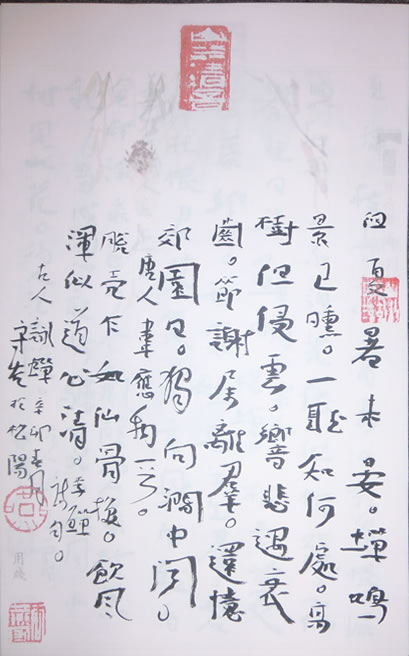 徂夏暑未晏。蟬鳴
景已曛。一聽知何處。高
樹但侵雲。響悲遇衰
齒。節謝屬離羣。還憶
郊園日。獨向澗中聞。
唐人韋應物
脫壳下如仙骨換。飲風
渾似道心清。李鱓詩句。
古人詠蟬 辛卯春月
於松陽
用箋